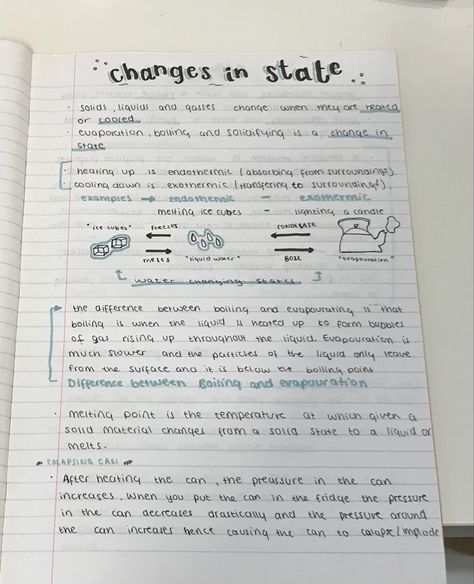 changes in state
· solids, liquids and gasses change when they are heated
or cooled.
· evaporation, boiling and solidifying is a change in
state
· heating up is endothermic (absorbing from surroundings).
cooling down is exothermic (transfering to surroundings).
examples → endothermic - exothermic
melting ice cubes - lighting a candle
"ice cubes" freezes CONDENSATE
melts "liquid water" BOIL "evapouration"
water changing states
the difference between boiling and evapourating is that
boiling is when the liquid is heated up to form bubbles
of gas rising up throughout the liquid. Evapouration is
much slower and the particles of the liquid only leave
from the surface and it is below the boiling point
Difference between Boiling and evapouration
· melting point is the temperature at which given a
solid material changes from a solid state to a liquid or
melts.
COLAPSING CAN
· After heating the can, the preassure in the can
increases. When you put the can in the fridge the pressure
in the can decreases drastically and the pressure around
the can increases hence causing the can to colapse/implode